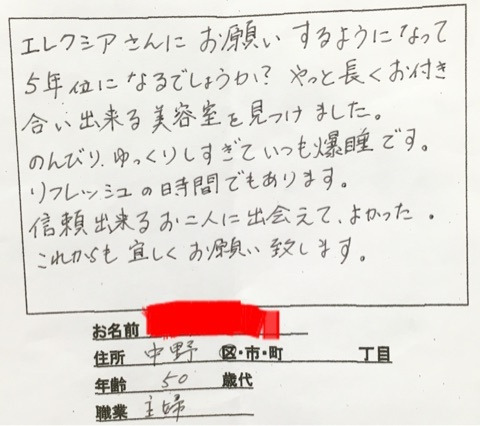 エレクシアさんに お願い するようになって
5年位になるでしょうか? やっと長くお付き
合い出来る美容室を見つけました。
のんびり、ゆっくりしすぎていつも爆睡です。
リフレッシュの時間でもあります。
信頼出来るお二人に出会えて、よかった。
これからも 宜しく お願い 致します。
お名前
住所 中野 区・市・町 丁目
年齢 50 歳代
職業 主婦